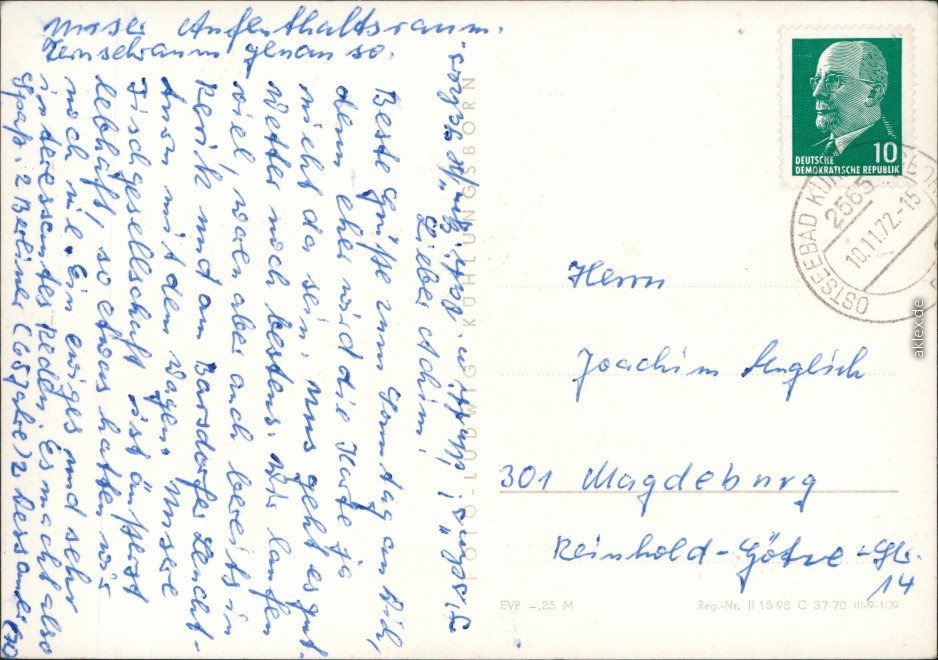 unser Aufenthaltsraum.
Fernsehraum genau so.
Lieber Achim!
Beste Grüße zum Sonntag an Dich,
denn eher wird die Karte ja
nicht da sein. Uns geht es gut.
Wetter noch bestens. Wir laufen
viel, waren aber auch bereits in
Rerik und am Barsdorfer Leucht-
turm mit dem Wagen. Unsere
Tischgesellschaft ist äußerst
lebhaft, so etwas hatten wir
noch nie. Ein ewiges und sehr
interessantes Reden. Es macht also
Spaß. 2 Berliner (65 Jahre) 2 Dessauer (70
FOTO-LUDWIG KÜHLUNGSBORN
DEUTSCHE
DEMOKRATISCHE REPUBLIK
10
OSTSEEBAD
2565
10.11.72.-15
Herrn
Joachim Anglich
301 Magdeburg
Reinhold-Götze-
14
EVP –,25 M
Reg.-Nr. II 15 98 C 37-70 III-9-109
aklex.de